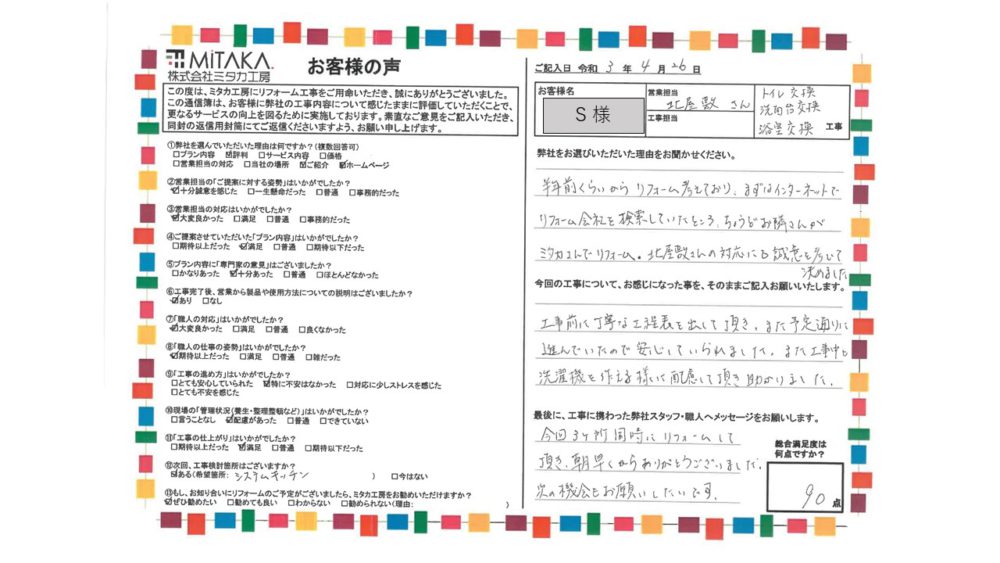 MiTAKA.
株式会社ミタカ工房
お客様の声
この度は、ミタカ工房にリフォーム工事をご用命いただき、誠にありがとうございました。
この通信簿は、お客様に弊社の工事内容について感じたままに評価していただくことで、
更なるサービスの向上を図るために実施しております。素直なご意見をご記入いただき、
同封の返信用封筒にてご返信くださいますよう、お願い申し上げます。
①弊社を選んでいただいた理由は何ですか？(複数回答可)
□プラン内容 ☑評判 □サービス内容 □価格
□営業担当の対応 □当社の場所 ☑ご紹介 ☑ホームページ
②営業担当の「ご提案に対する姿勢」はいかがでしたか？
☑十分誠意を感じた □一生懸命だった □普通 □事務的だった
③営業担当の対応はいかがでしたか？
☑大変良かった □満足 □普通 □事務的だった
④ご提案させていただいた「プラン内容」はいかがでしたか？
□期待以上だった ☑満足 □普通 □期待以下だった
⑤プラン内容に「専門家の意見」はございましたか？
□かなりあった ☑十分あった □普通 □ほとんどなかった
⑥工事完了後、営業から製品や使用方法についての説明はございましたか？
☑あり □なし
⑦「職人の対応」はいかがでしたか？
☑大変良かった □満足 □普通 □良くなかった
⑧「職人の仕事の姿勢」はいかがでしたか？
☑期待以上だった □満足 □普通 □雑だった
⑨「工事の進め方」はいかがでしたか？
□とても安心していられた ☑特に不安はなかった □対応に少しストレスを感じた
□とても不安を感じた
⑩現場の「管理状況(養生・整理整頓など)」はいかがでしたか？
□言うことなし ☑配慮があった □普通 □できていない
⑪「工事の仕上がり」はいかがでしたか？
□期待以上だった ☑満足 □普通 □期待以下だった
⑫次回、工事検討箇所はございますか？
☑ある(希望箇所: システムキッチン ) □今はない
⑬もし、お知り合いにリフォームのご予定がございましたら、ミタカ工房をお勧めいただけますか？
☑ぜひ勧めたい □勧めても良い □わからない □勧められない(理由: )
ご記入日 令和 3 年 4 月 26 日
お客様名
S 様
営業担当
北屋敷 さん
工事担当
トイレ交換
洗面台交換
浴室交換 工事
弊社をお選びいただいた理由をお聞かせください。
半年前くらいからリフォーム考えており、まずはインターネットで
リフォーム会社を検索していたところ、ちょうどお隣さんが
ミタカさんでリフォーム。北屋敷さんの対応にも誠意を感じて
決めました
今回の工事について、お感じになった事を、そのままご記入お願いいたします。
工事前に丁寧な工程表を出して頂き、また予定通りに
進んでいたので安心していられました。また工事中も
洗濯機を使える様に配慮して頂き助かりました。
最後に、工事に携わった弊社スタッフ・職人へメッセージをお願いします。
今回3ヶ所同時にリフォームして
頂き、朝早くからありがとうございました。
次の機会もお願いしたいです。
総合満足度は
何点ですか？
90 点